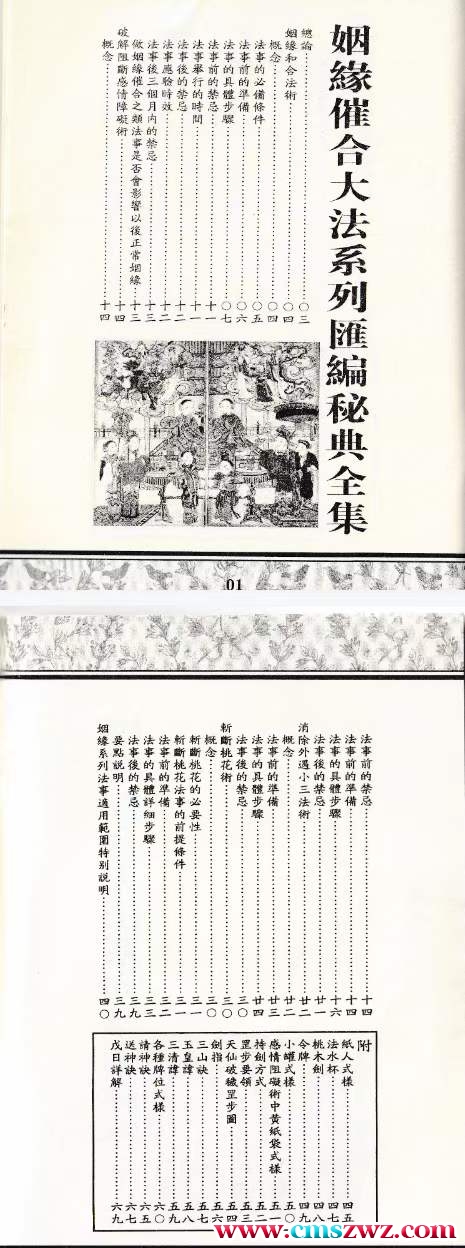 姻緣催合大法系列匯編秘典全集
總論……〇三
姻緣和合法術……〇四
概念……〇四
法事的必備條件……〇五
法事前的準備……〇六
法事的具體步驟……〇七
法事前的禁忌……十一
法事舉行的時間……十一
法事後的禁忌……十二
法事應驗時效……十二
法事後三個月内的禁忌……十三
做姻緣催合之類法事是否會影響以後正常姻緣……十三
破解阻斷感情障礙術……十四
概念……十四
01
法事前的禁忌……十四
法事前的準備……十四
法事的具體步驟……十六
法事後的禁忌……廿一
消除外遇小三法術……廿二
概念……廿二
法事前的準備……廿三
法事的具體步驟……廿四
法事後的禁忌……三〇
斬斷桃花術……三〇
概念……三〇
斬斷桃花的必要性……三一
斬斷桃花法事的前提條件……三一
法事前的準備……三二
法事的具體詳細步驟……三三
法事後的禁忌……三九
要點說明……三九
姻緣系列法事適用範圍特别說明……四〇
附
紙人式樣……四五
法水杯……四七
桃木劍……四八
令牌……四九
小罐式樣……五〇
感情阻礙術中黄紙袋式樣……五一
持劍方式……五二
罡步要領……五三
天仙破穢罡步圖……五四
劍指……五五
三山訣……五七
玉皇諱……五八
三清諱……五九
各種牌位式樣……六〇
請神訣……六五
送神訣……六七
戊日詳解……六九
www.cmszwz.com